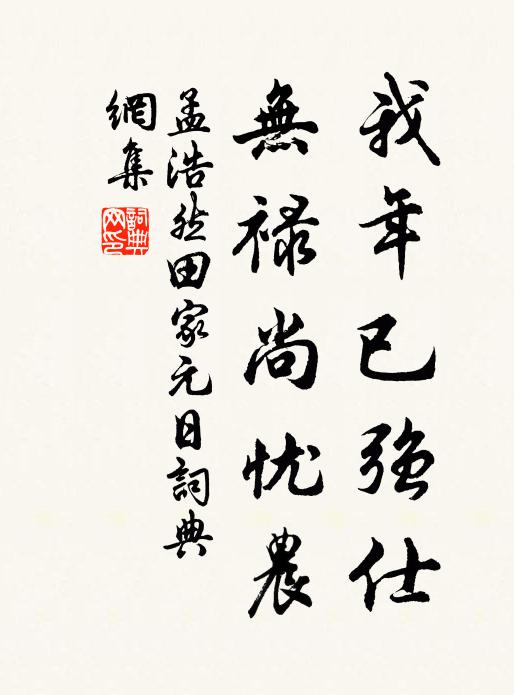 我年已強仕
無禄尚忧農
孟浩然田家元日詞典
網集
詞典
网印